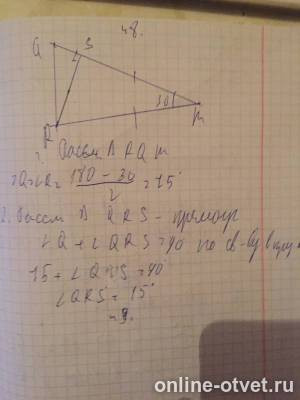 48.
Q S
30°
R m
1. Рассм. Δ RQm
∠Q=∠R= 180 - 30 / 2 = 75°
2. Рассм Δ QRS - прямоуг
∠Q + ∠QRS = 90 по св-ву
75 + ∠QRS = 90°
∠QRS = 15°
online-otvet.ru